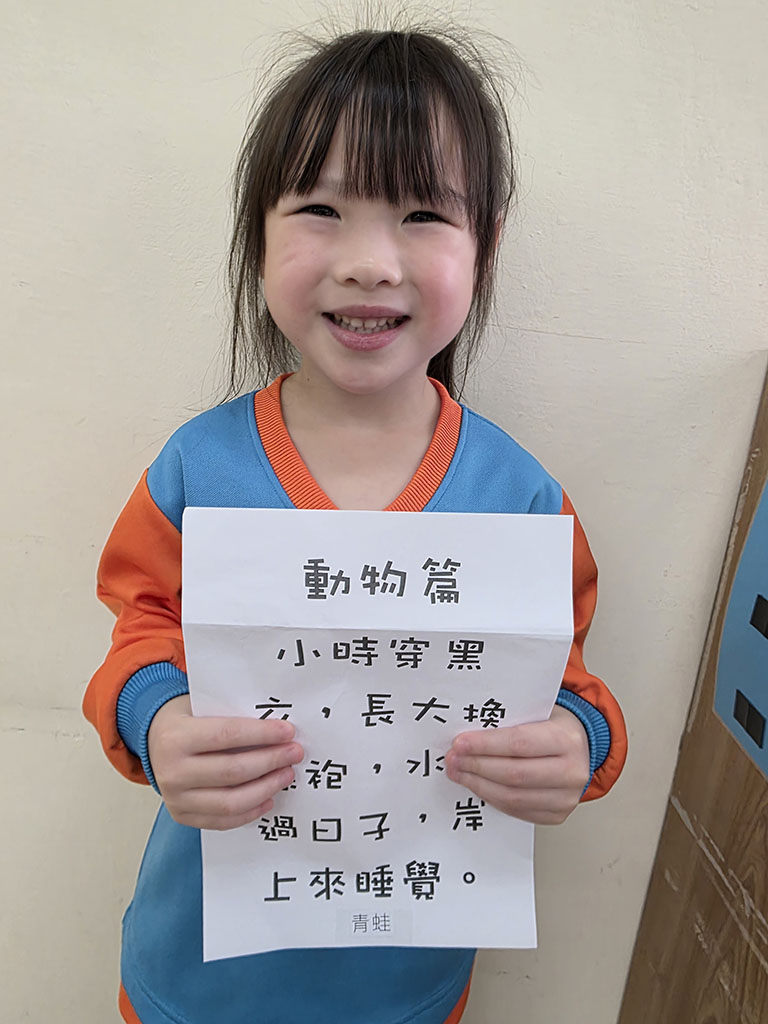 動物篇
小時穿黑
衣，長大換
袍，水
過日子，岸
上來睡覺。
青蛙